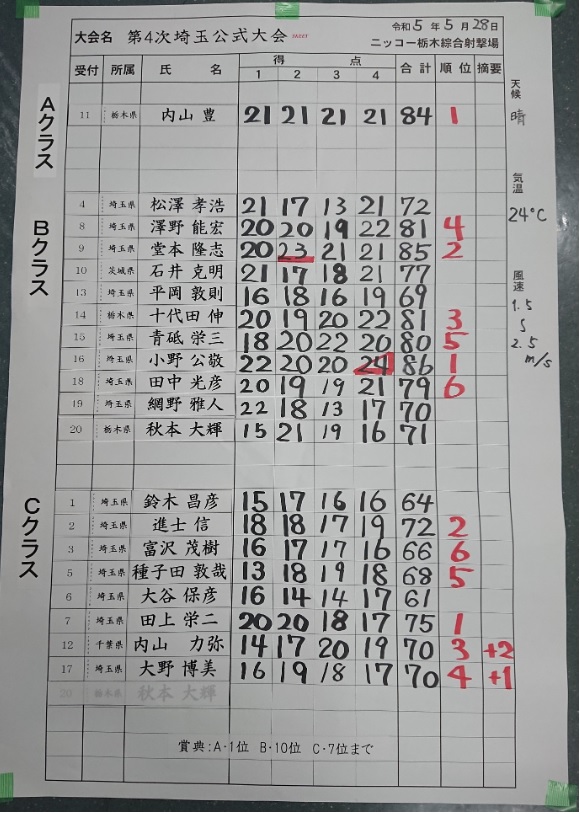 大会名 第4次埼玉公式大会 SKEET
令和5年5月28日
ニッコー栃木綜合射撃場
受付 所属 氏名 得点 合計 順位 摘要
1 2 3 4
Aクラス
11 栃木県 内山 豊 21 21 21 21 84 1
Bクラス
4 埼玉県 松澤 孝浩 21 17 13 21 72
8 埼玉県 澤野 能宏 20 20 19 22 81 4
9 埼玉県 堂本 隆志 20 23 21 21 85 2
10 茨城県 石井 克明 21 17 18 21 77
13 埼玉県 平岡 敦則 16 18 16 19 69
14 栃木県 十代田 伸 20 19 20 22 81 3
15 埼玉県 青砥 栄三 18 20 22 20 80 5
16 埼玉県 小野 公敬 22 20 20 24 86 1
18 埼玉県 田中 光彦 20 19 19 21 79 6
19 埼玉県 網野 雅人 22 18 13 17 70
20 栃木県 秋本 大輝 15 21 19 16 71
Cクラス
1 埼玉県 鈴木 昌彦 15 17 16 16 64
2 埼玉県 進士 信 18 18 17 19 72 2
3 埼玉県 富沢 茂樹 16 17 17 16 66 6
5 埼玉県 種子田 敦哉 13 18 19 18 68 5
6 埼玉県 大谷 保彦 16 14 14 17 61
7 埼玉県 田上 栄二 20 20 18 17 75 1
12 千葉県 内山 力弥 14 17 20 19 70 3 +2
17 埼玉県 大野 博美 16 19 18 17 70 4 +1
20 栃木県 秋本 大輝
賞典:A・1位 B・10位 C・7位まで
天候
晴
気温
24℃
風速
1.5
〜
2.5
m/s